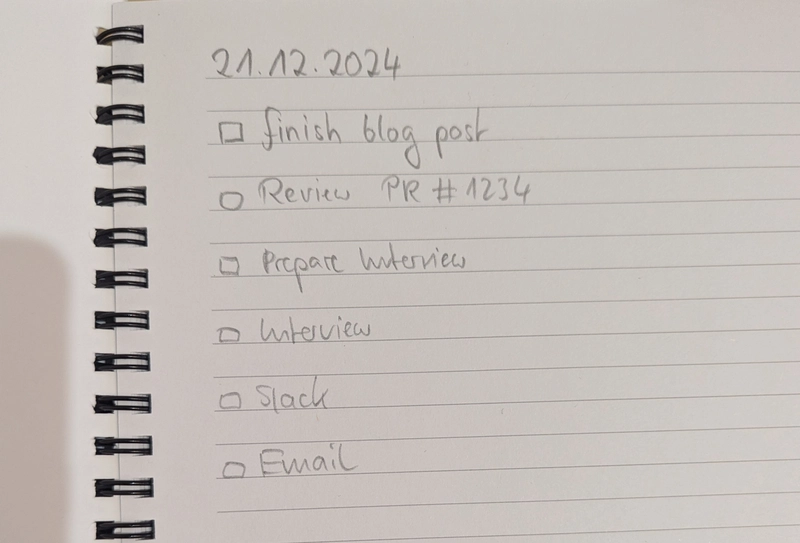 21.12.2024
☐ finish blog post
☐ Review PR #1234
☐ Prepare Interview
☐ Interview
☐ Slack
☐ Email